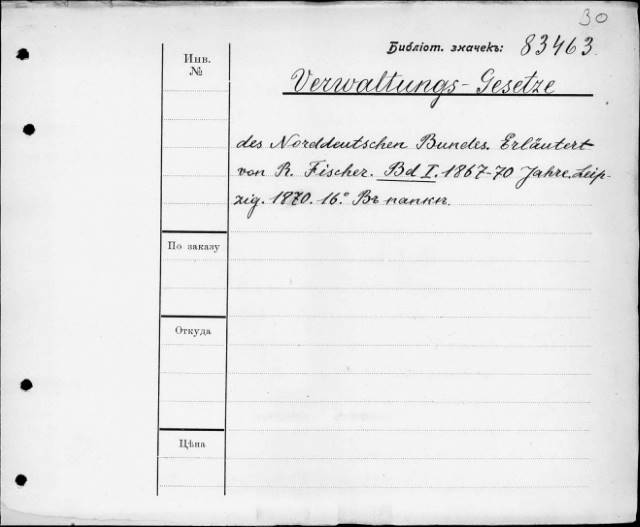 30
Библіот. значекъ: 83463.
Инв.
№
Verwaltungs-Gesetze
des Norddeutschen Bundes. Erläutert
von R. Fischer. Bd I. 1867-70 Jahre. Leip-
zig. 1870. 16.° Въ папкѣ.
По заказу
Откуда
Цѣна